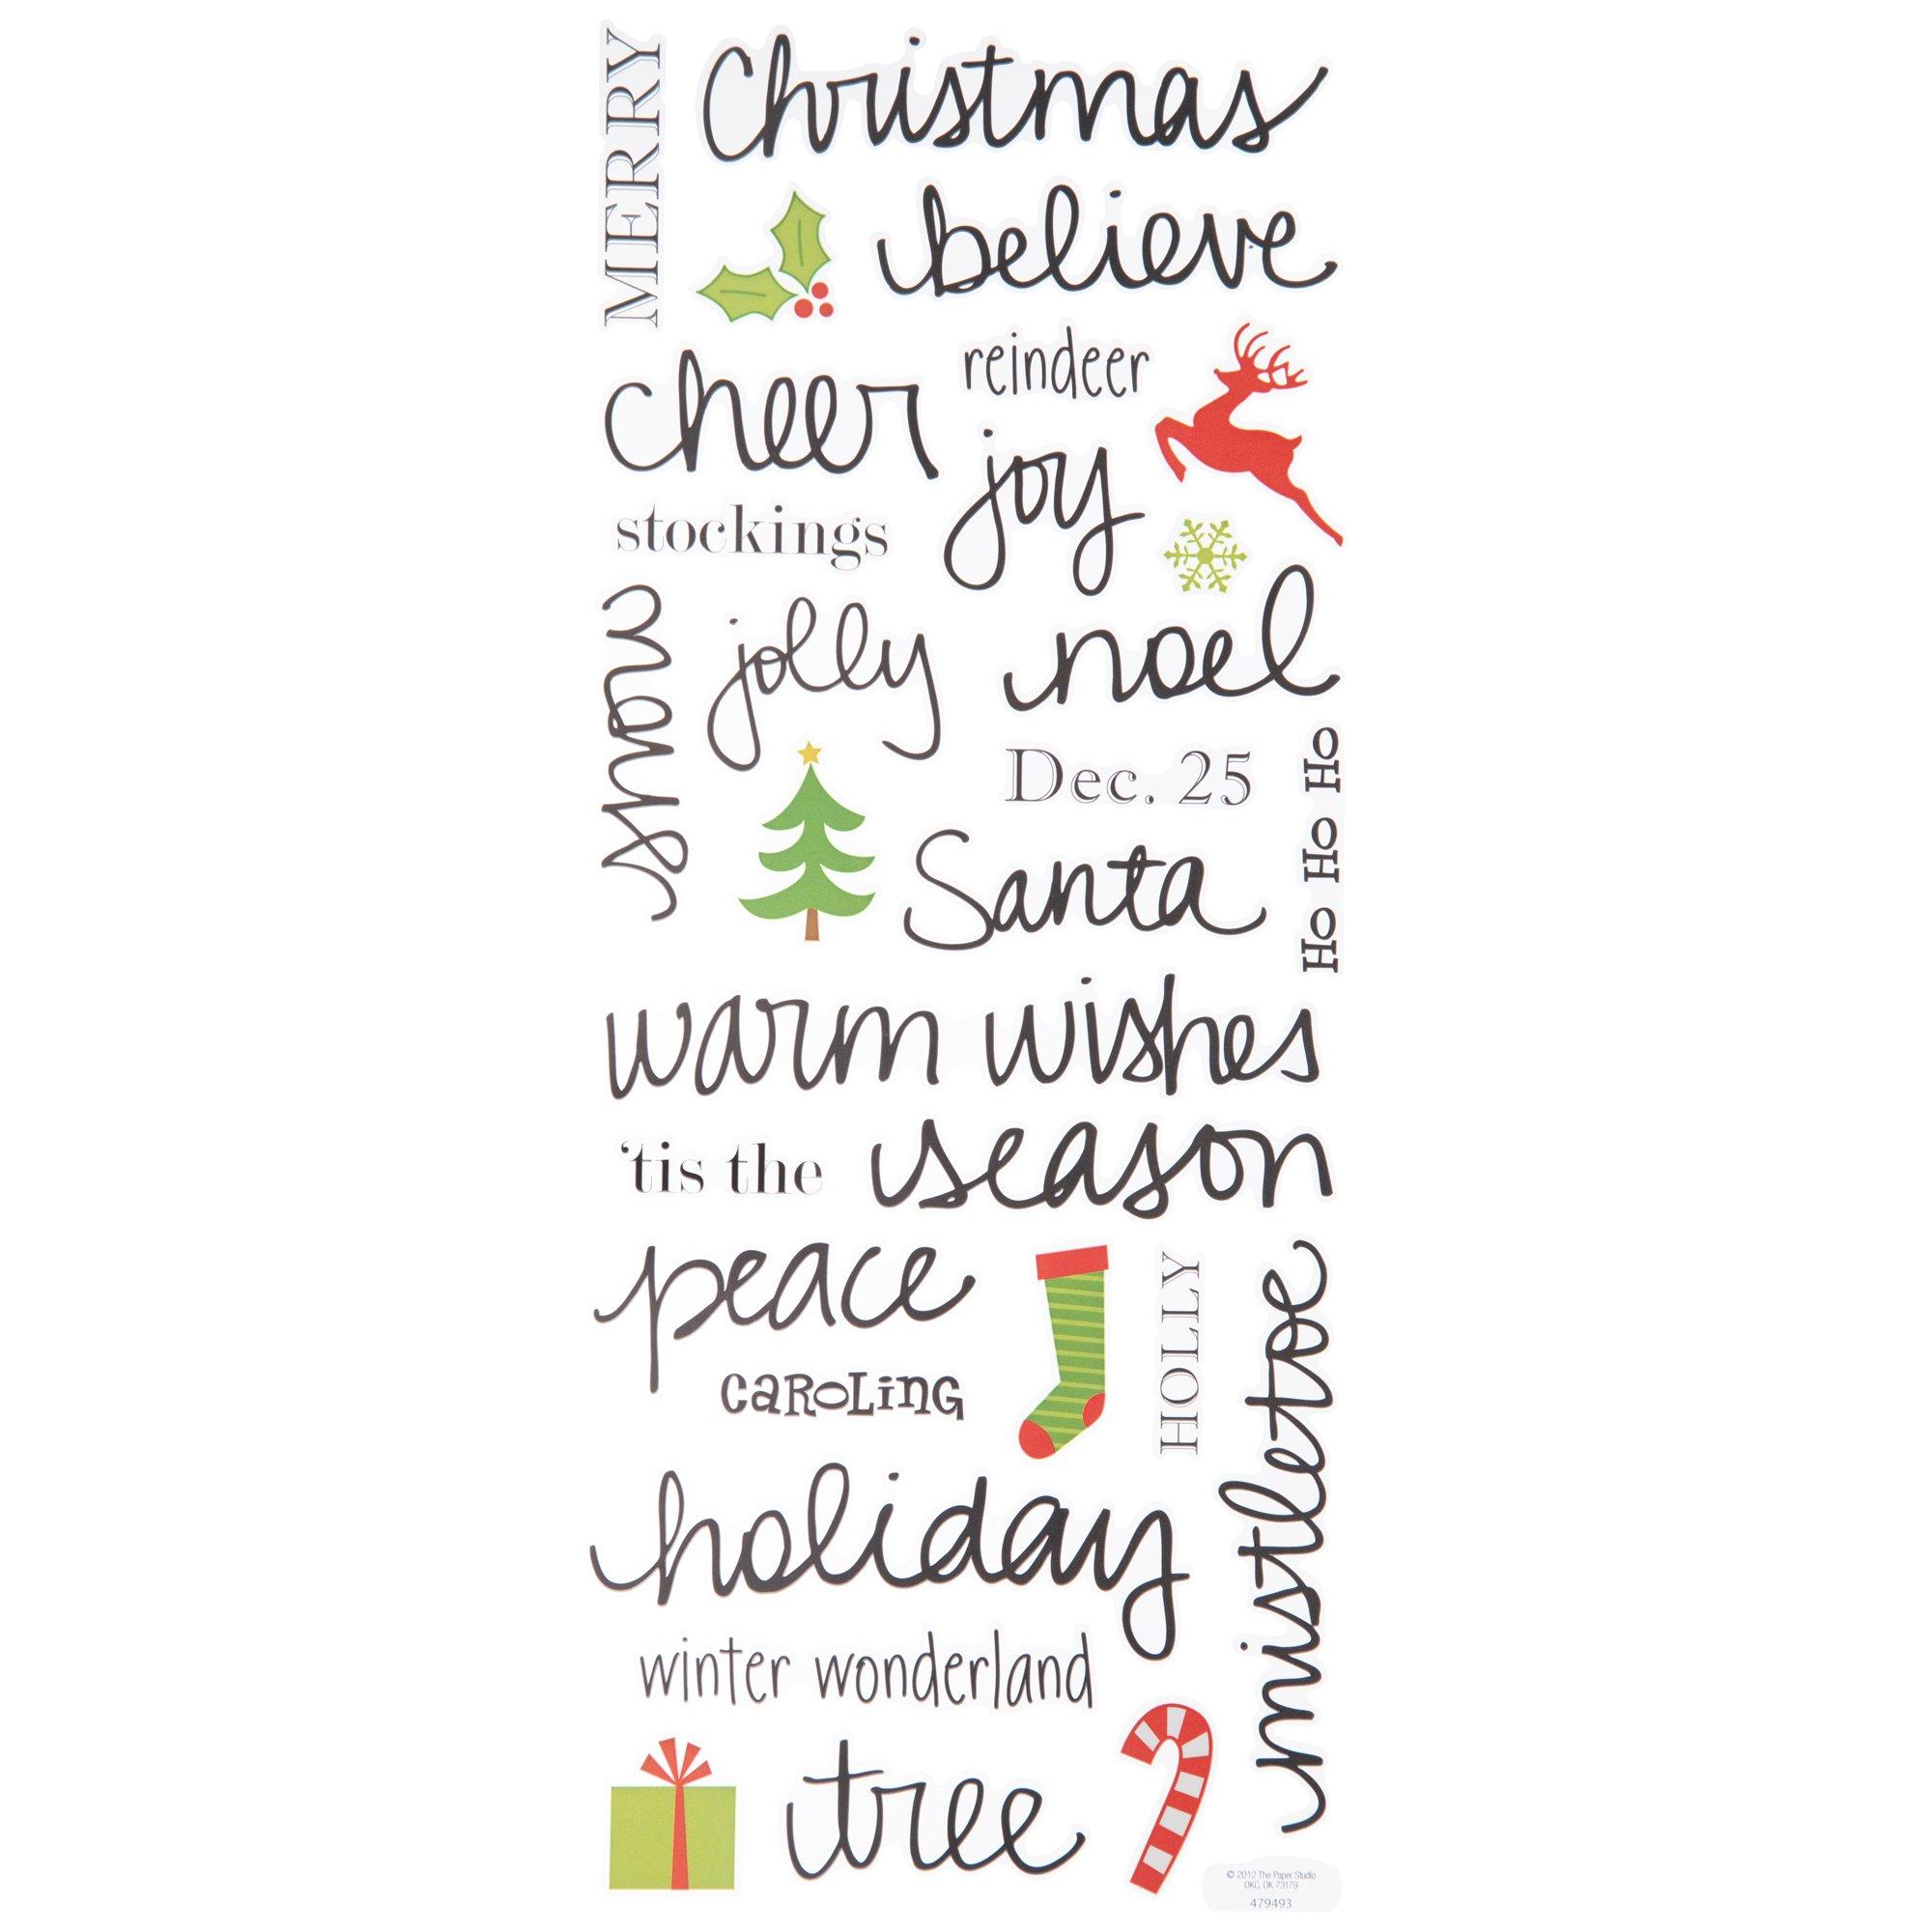 MERRY
Christmas
believe
reindeer
cheer
joy
stockings
snow
jolly
noel
Dec. 25
HO HO HO
Santa
warm wishes
'tis the season
peace
CAROLING
HOLLY
mistletoe
holiday
winter wonderland
tree
© 2012 The Paper Studio
OKC, OK 73179
479493